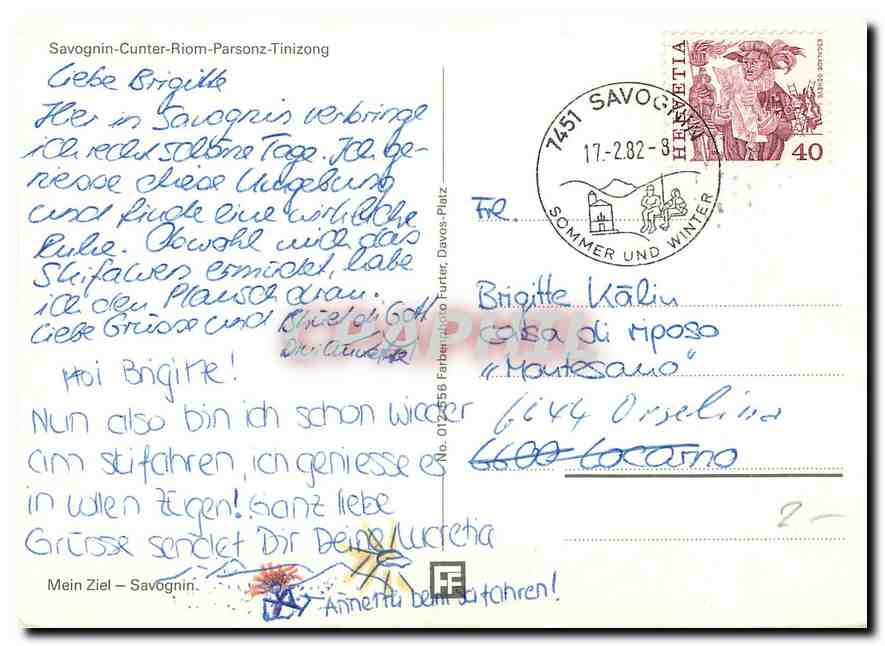 Savognin-Cunter-Riom-Parsonz-Tinizong
Liebe Brigitte
Hier in Savognin verbringe
ich recht schöne Tage. Ich ge-
niesse diese Umgebung
und finde eine wirkliche
Ruhe. Obwohl mich das
Skifahren ermüdet, habe
ich den Plausch dran.
Liebe Grüsse und Bhüet di Gott
Hoi Brigitte!
Nun also bin ich schon wieder
am skifahren, ich geniesse es
in vollen Zügen! Ganz liebe
Grüsse sendet Dir Deine Lucretia
Mein Ziel – Savognin.
Annetta beim skifahren!
No. 012 556 Farbenphoto Furter, Davos-Platz
FF
7451 SAVOGNIN
17.-2.82-8
SOMMER UND WINTER
HELVETIA
40
ESCALADE GENEVE
Frl.
Brigitte Kälin
casa di riposo
„Montesano"
6644 Orselina
6600 Locarno
2.-
CPAPHIL